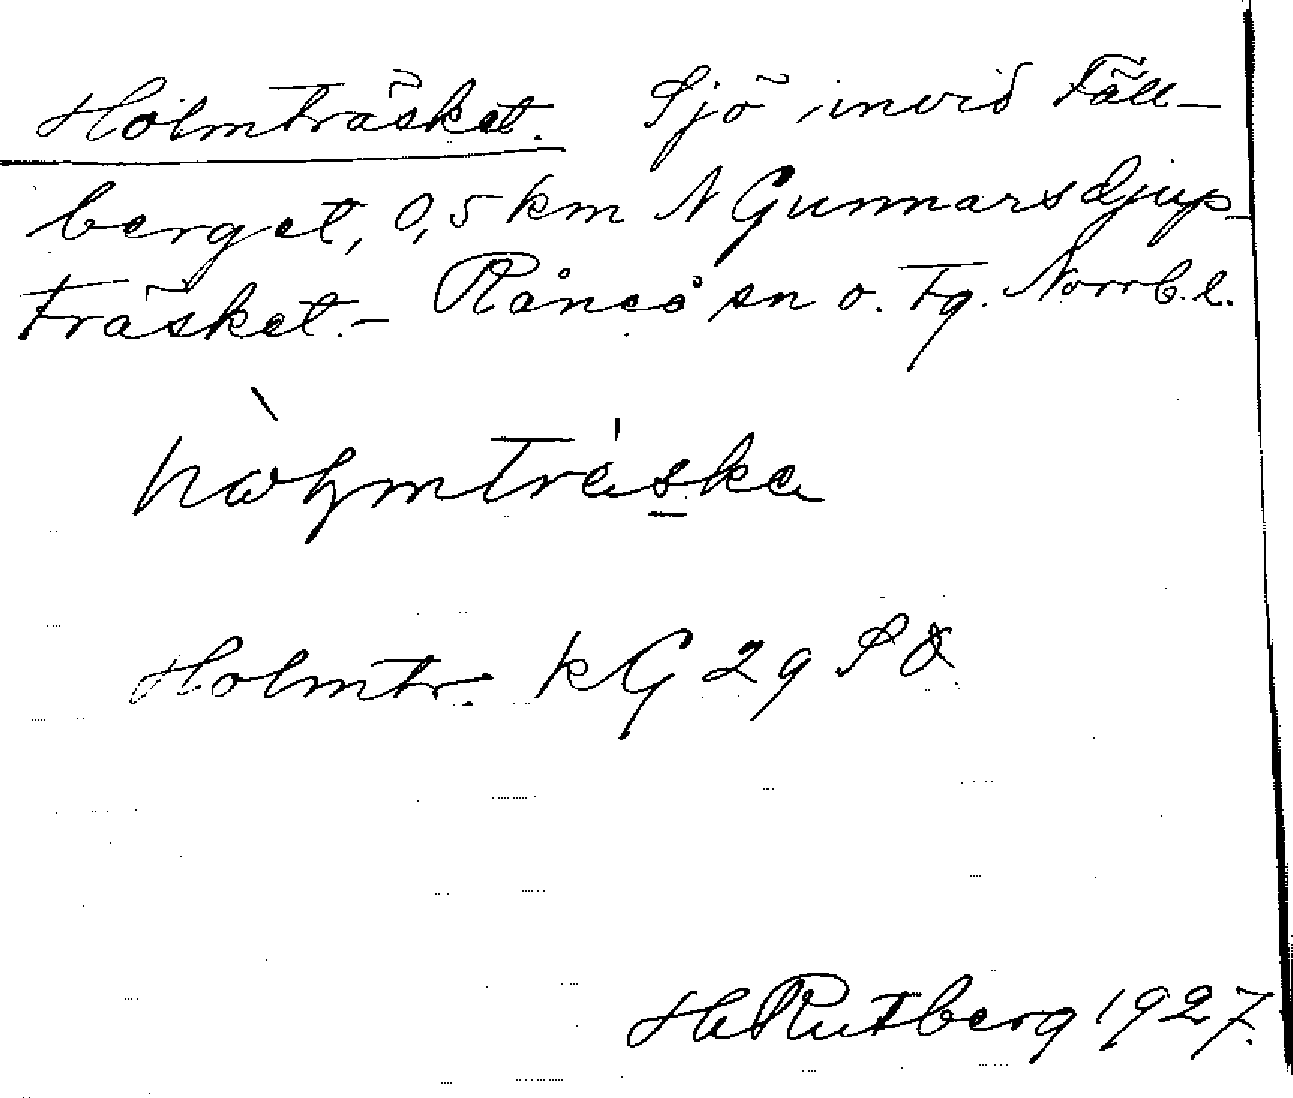 Holmträsket. Sjö invid Fäll-
berget, 0,5 km N Gunnarsdjup-
träsket.- Råneå sn o. tg. Norrb.l.
Holmtr. KG 29 SÖ
H Rutberg 1927.